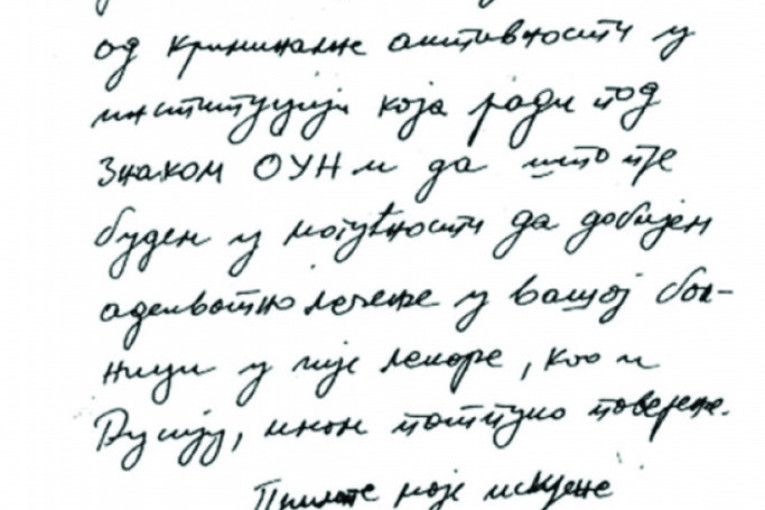 од криминалне активности у
институцији која ради под
знаком ОУН и да што пре
будем у могућности да добијем
адекватно лечење у вашој бол-
ници у чије лекаре, као и
Русију, имам потпуно поверење.
Примите моје искрене